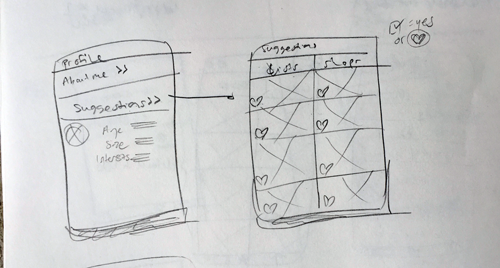 Profile
About me >>
Suggestions >>
Age
Size
Interests
Suggestions
= yes
or